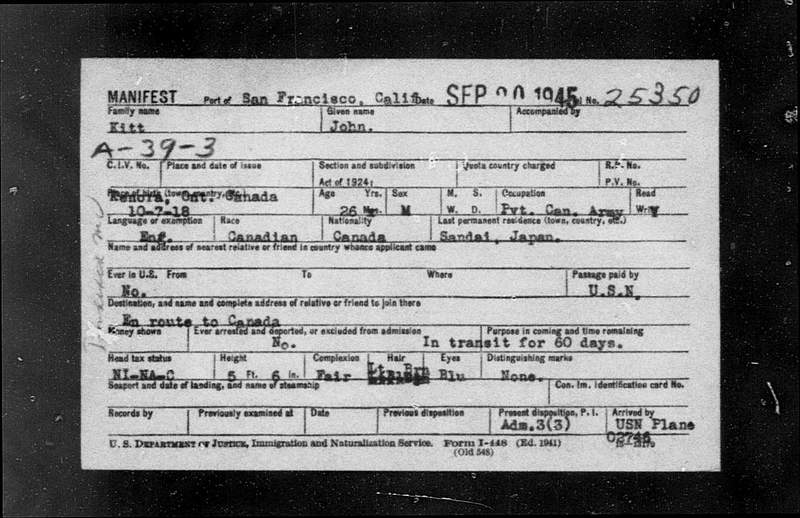 MANIFEST Port of San Francisco, Calif Date SEP 20 1945 No. 25350
Family name Given name Accompanied by
Kitt John.
A-39-3
C.I.V. No. Place and date of issue Section and subdivision Quota country charged R.P. No.
Act of 1924: P.V. No.
Place of birth (town, country, etc.) Age Yrs. Sex M. S. Occupation Read
Kenora, Ont. Canada
10-7-18 26 Mos. M W. D. Pvt. Can. Army Write Y
Language or exemption Race Nationality Last permanent residence (town, country, etc.)
Eng. Canadian Canada Sandai, Japan.
Name and address of nearest relative or friend in country whence applicant came
Ever in U.S. From To Where Passage paid by
No. U.S.N.
Destination, and name and complete address of relative or friend to join there
En route to Canada
Money shown Ever arrested and deported, or excluded from admission Purpose in coming and time remaining
No. In transit for 60 days.
Head tax status Height Complexion Hair Eyes Distinguishing marks
NI-NA-C 5 Ft. 6 In. Fair Lt. Brn Blu None.
Seaport and date of landing, and name of steamship Con. Im. Identification card No.
Records by Previously examined at Date Previous disposition Present disposition, P. I. Arrived by
Adm.3(3) USN Plane
02746
U. S. DEPARTMENT OF JUSTICE, Immigration and Naturalization Service. Form I-448 (Ed. 1941)
(Old 548)